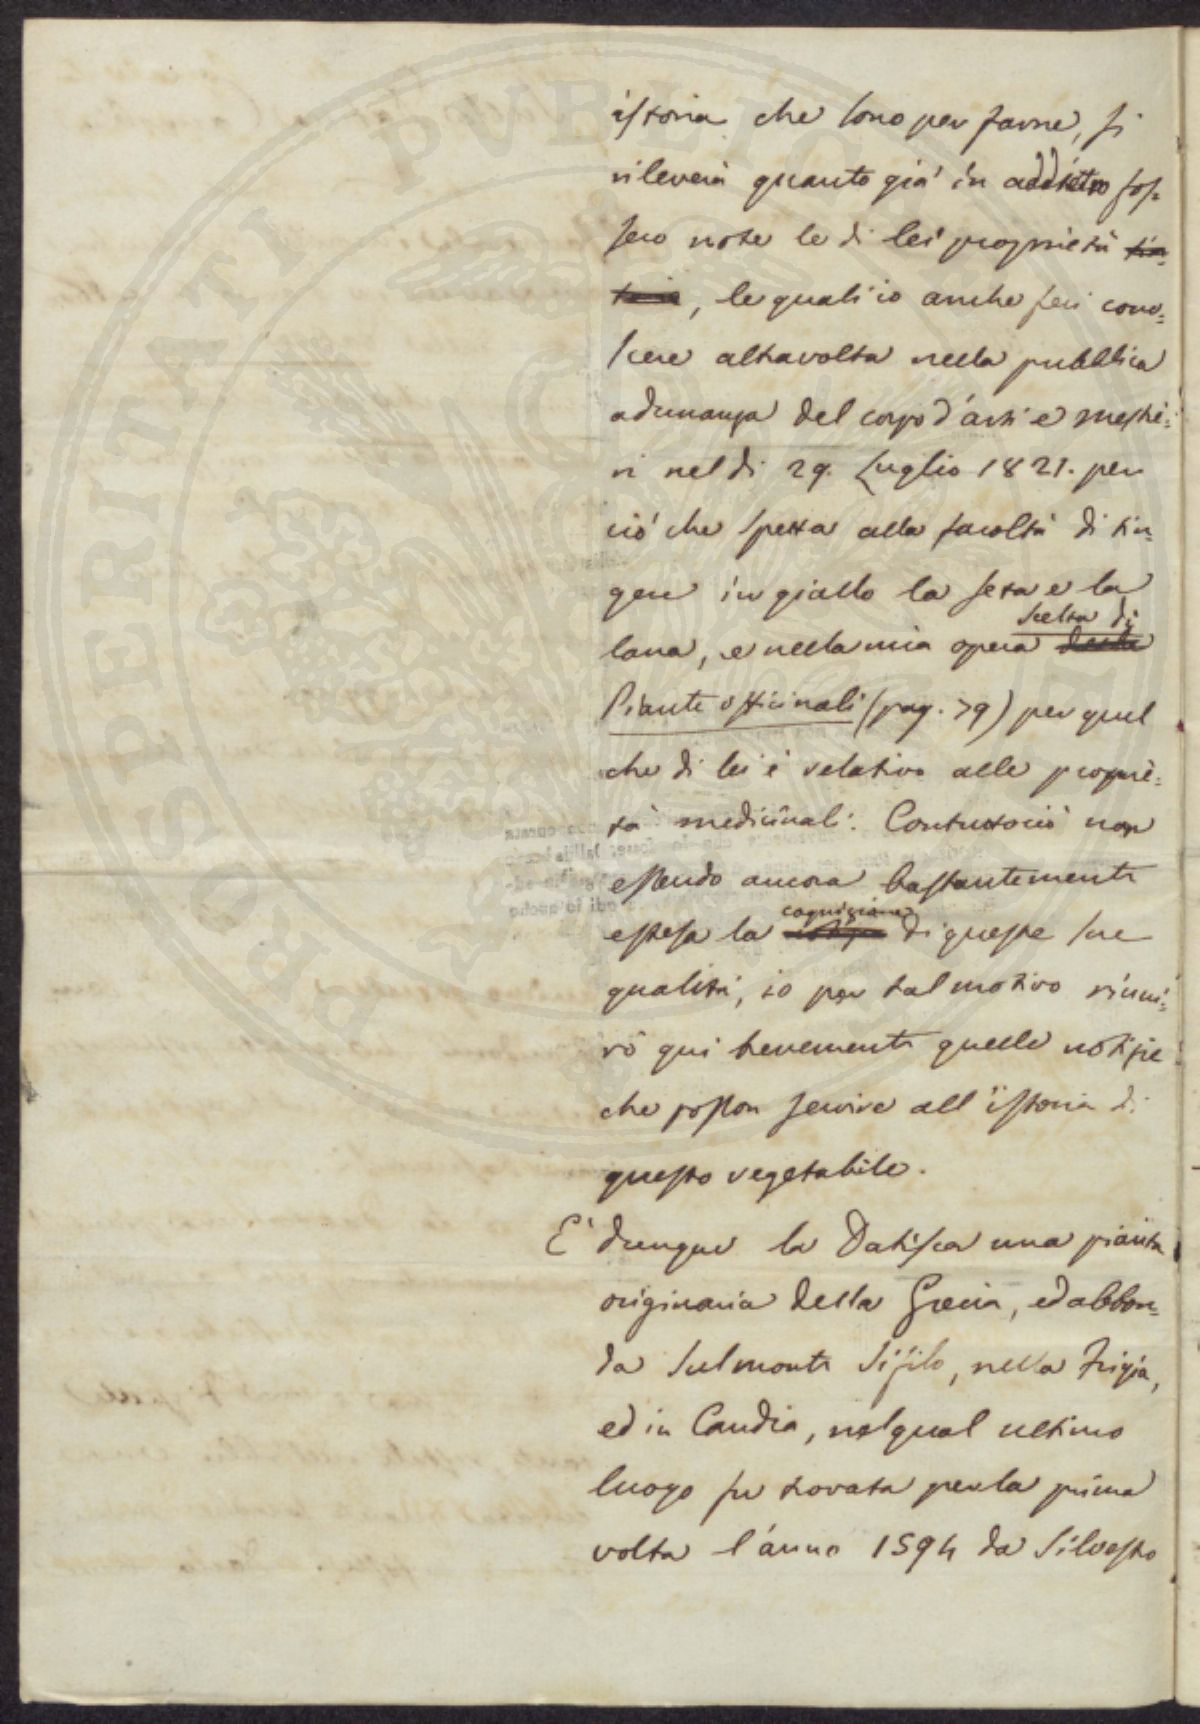 istoria che sono per farne, si
rileverà quanto già in addietro fos-
sero note le di lei proprietà tin-
torie, le quali io anche feci cono=
scere altravolta nella pubblica
adunanza del corpo d'arti e mestie=
ri nel dì 29. Luglio 1821. per
ciò che spetta alla facoltà di tin-
gere in giallo la seta e la
scelta di
lana, e nella mia opera delle
Piante officinali (pag. 79) per quel
che di lei è relativo alle proprie=
tà medicinali. Contuttociò non
essendo ancora bastantemente
cognizione
estesa la di queste sue
qualità, io per tal motivo riuni=
rò qui brevemente quelle notizie
che posson servire all'istoria di
questo vegetabile.
E' dunque la Datisca una pianta
originaria della Grecia, ed abbon-
da sul monte Sifilo, nella Frigia,
ed in Candia, nel qual ultimo
luogo fu trovata per la prima
volta l'anno 1594 da Silvestro
PROSPERITATI PVBLICAE